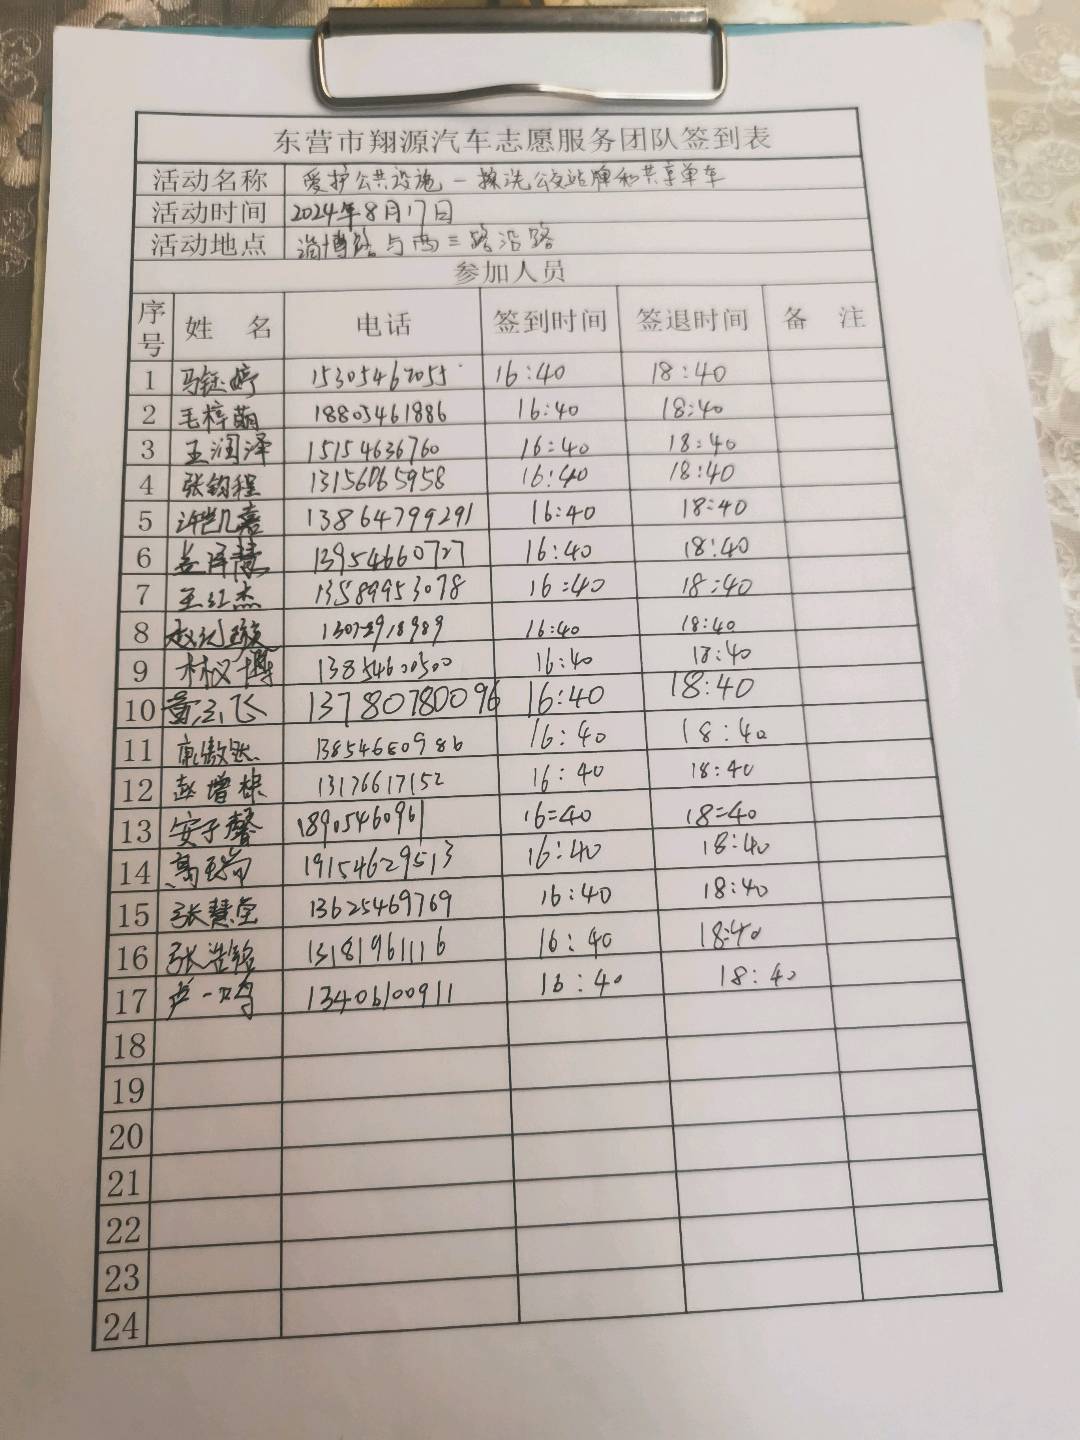 东营市翔源汽车志愿服务团队签到表
活动名称 爱护公共设施一擦洗公交站牌和共享单车
活动时间 2024年8月17日
活动地点 淄博路与西三路沿路
参加人员
序号 姓名 电话 签到时间 签退时间 备注
1 马钰婷 15305467055 16:40 18:40
2 毛梓萌 18805461886 16:40 18:40
3 王润泽 15154636760 16:40 18:40
4 张钧程 13156065958 16:40 18:40
5 许凯嘉 13864799291 16:40 18:40
6 姜泽慧 13954660727 16:40 18:40
7 王红杰 13589953078 16:40 18:40
8 13072918989 16:40 18:40
9 林汉博 13854600500 16:40 18:40
10 董云飞 13780780096 16:40 18:40
11 13854680986 16:40 18:40
12 赵增棣 13176617152 16:40 18:40
13 安子馨 18905460961 16:40 18:40
14 19154629513 16:40 18:40
15 张慧莹 13625469769 16:40 18:40
16 张浩铭 13181961116 16:40 18:40
17 卢一鸣 13406100911 16:40 18:40
18
19
20
21
22
23
24